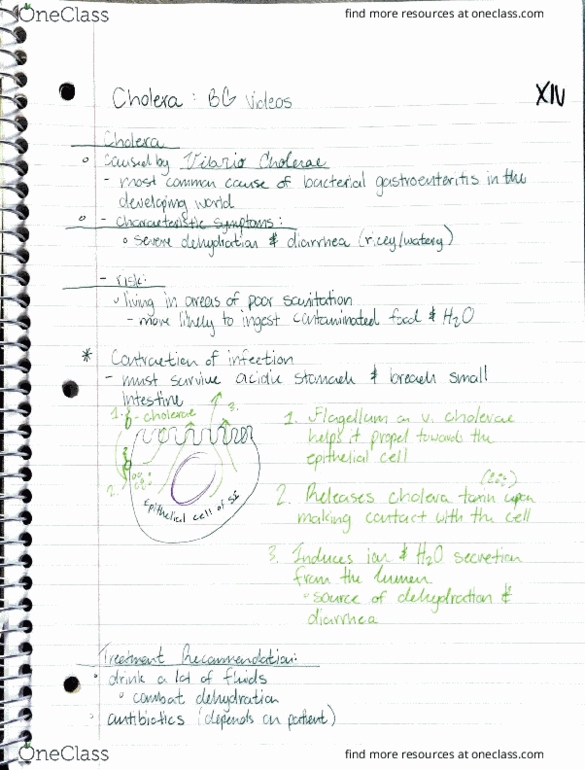 OneClass
find more resources at oneclass.com
XIV
Cholera : BG videos
Cholera
Caused by Vibrio Cholerae
- most common cause of bacterial gastroenteritis in the
developing world
- characteristic symptoms :
severe dehydration & diarrhea (ricey/watery)
- risk:
living in areas of poor sanitation
- more likely to ingest contaminated food & H2O
* Contraction of infection
- must survive acidic stomach & breach small
intestine
1. - cholerae
3.
2.
Epithelial cell of SI
1. Flagellum on v. cholerae
helps it propel towards the
epithelial cell
2. Releases cholera toxin upon
making contact with the cell
3. Induces ion & H2O secretion
from the lumen
source of dehydration &
diarrhea
Treatment Recommendation:
drink a lot of fluids
combat dehydration
antibiotics (depends on patient)
OneClass
find more resources at oneclass.com